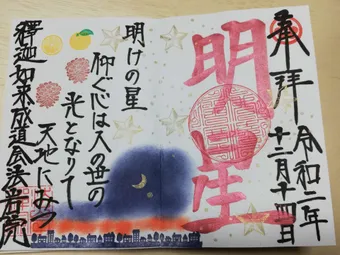 奉拝
令和二年
十二月十四日
明星
明けの星
仰ぐ心は人の世の
光となりて
天地にみつ
釋迦如来成道会